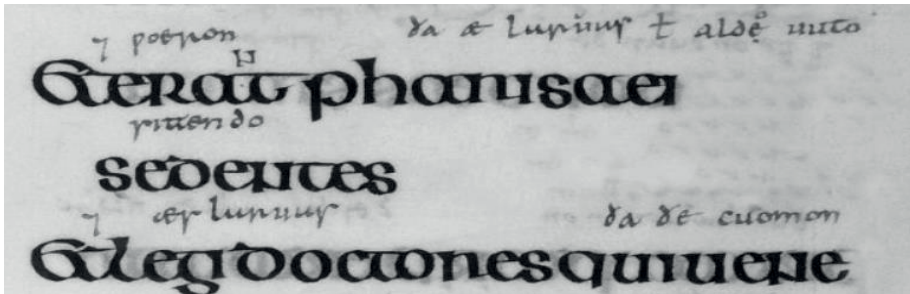 ⁊ ƿoeron ða æ laruuas ł alde uuto
Et erant pharisaei
sittendo
sedentes
⁊ æs laruuas ða ðe cuomon
Et leg doctores qui uene